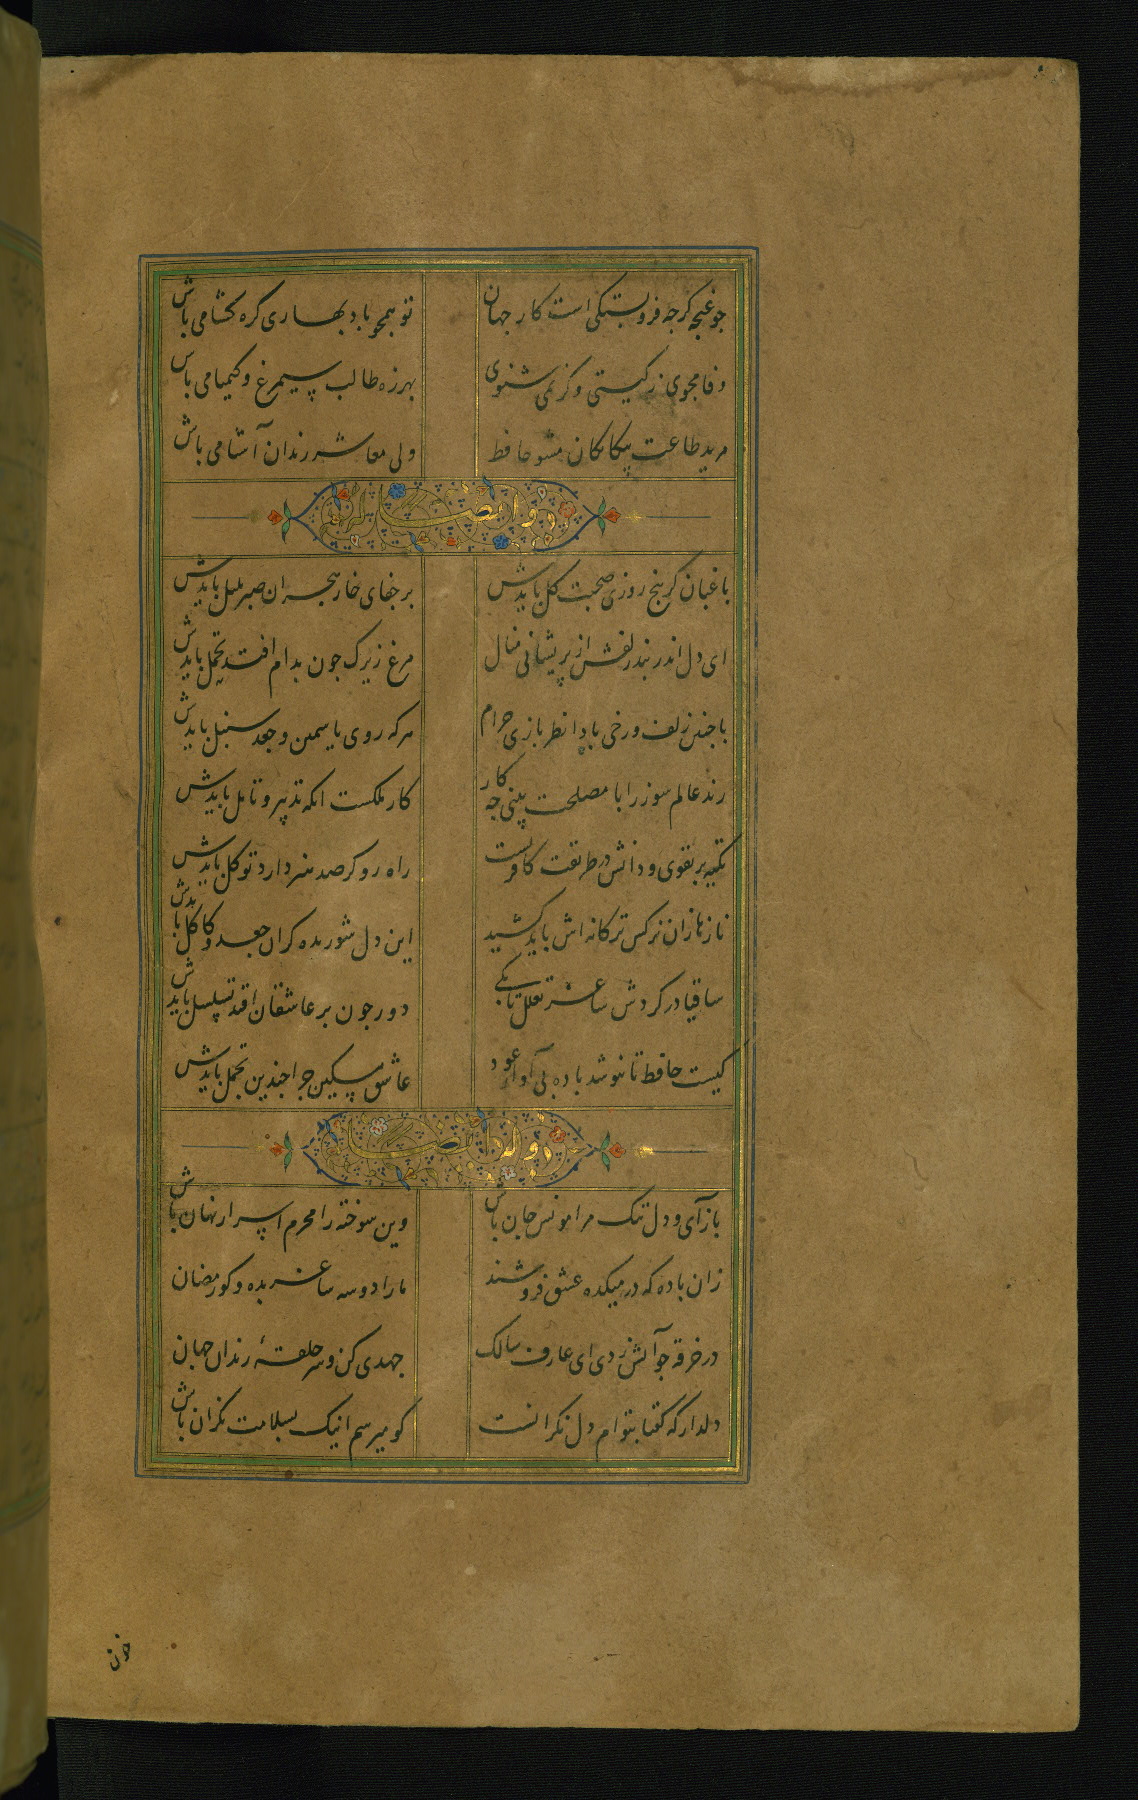 جو غنجه کرجه فروبستکی است کار جهان
تو همجو باد بهاری کره کشا می باش
وفا مجوی ز کیستی و کر نمی شنوی
بهرزه طالب سیمرغ و کیمیا می باش
مرید طاعت بیکانکان مشو حافظ
ولی معاشر رندان آشنا می باش
باغبان کر پنج روزی صحبت کل بایدش
بر جفای خار هجران صبر بلبل بایدش
ای دل اندر بند زلفش از پریشانی منال
مرغ زیرک جون بدام افتد تحمل بایدش
با جنین زلف و رخی بادا نظر بازی حرام
هرکه روی یاسمین و جعد سنبل بایدش
رند عالم سوز را با مصلحت بینی جه کار
کار ملکست انکه تدبیر و تامل بایدش
تکیه بر تقوی و دانش در طریقت کافریست
راه رو کر صد هنر دارد توکل بایدش
نازها زان نرکس ترکانه اش باید کشید
این دل شوریده کر ان جعد و کاکل بایدش
ساقیا در کردش ساغر تعلل تا بکی
دور جون بر عاشقان افتد تسلسل بایدش
کیست حافظ تا ننوشد باده بی آواز عود
عاشق مسکین جرا جندین تحمل بایدش
وله ایضا
بازآی و دل تنک مرا مونس جان باش
وین سوخته را محرم اسرار نهان باش
زان باده که در میکده عشق فروشند
ما را دو سه ساغر بده و کو رمضان
در خرقه جو آتش زدی ای عارف سالک
جهدی کن و سر حلقهٔ رندان جهان
دلدار که کفتا بتوام دل نکرانست
کو میرسم اینک بسلامت نکران باش
خون